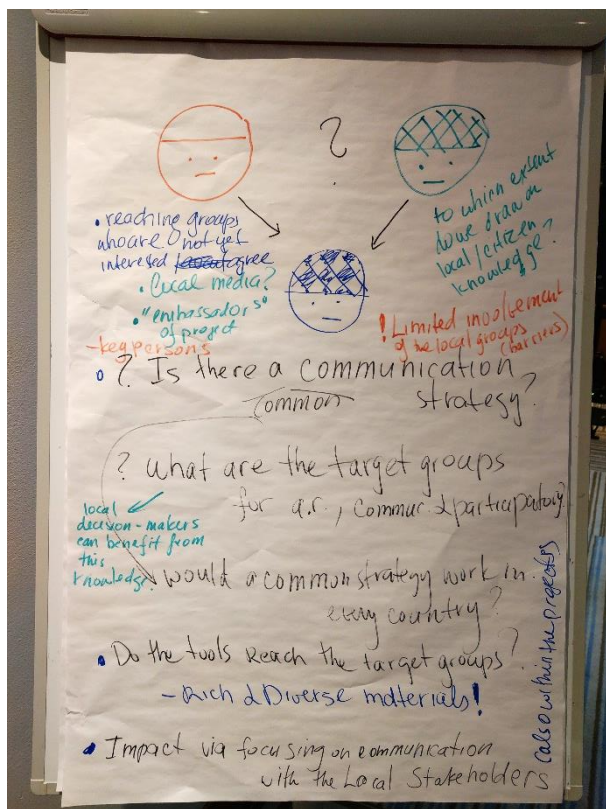 ?
• reaching groups
who are not yet
interested
• local media?
• "embassadors"
of project
- key persons
to which extent
do we draw on
local / citizen
knowledge?
! Limited involvement
of the local groups
(barriers)
? Is there a communication
common strategy?
? What are the target groups
for a.r., commun & participatory?
local
decision-makers
can benefit from
this
knowledge
? Would a common strategy work in
every country?
• Do the tools reach the target groups?
- Rich & Diverse materials!
(also within the projects)
• Impact via focusing on communication
with the Local Stakeholders